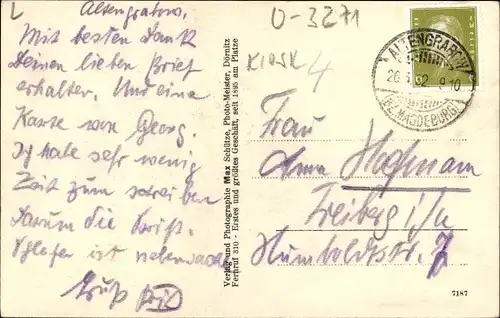 L
Altengrabow,
Mit besten Dank
Deinen lieben Brief
erhalten. Und eine
Karte von Georg.
Ich habe sehr wenig
Zeit zum schreiben
Darum die Krift.
Schlafen ist nebensache
Gruß
Verlag und Photographie Max Schütze, Photo-Meister, Dörnitz
Fernruf 310 - Erstes und größtes Geschäft, seit 1895 am Platze
U-3271
KIOSK 4
ALTENGRABOW
32
9-10
(BZ. MAGDEBURG)
Frau
Anna Hofmann
Freiberg i/Sa
Humboldtstr. 7
7187